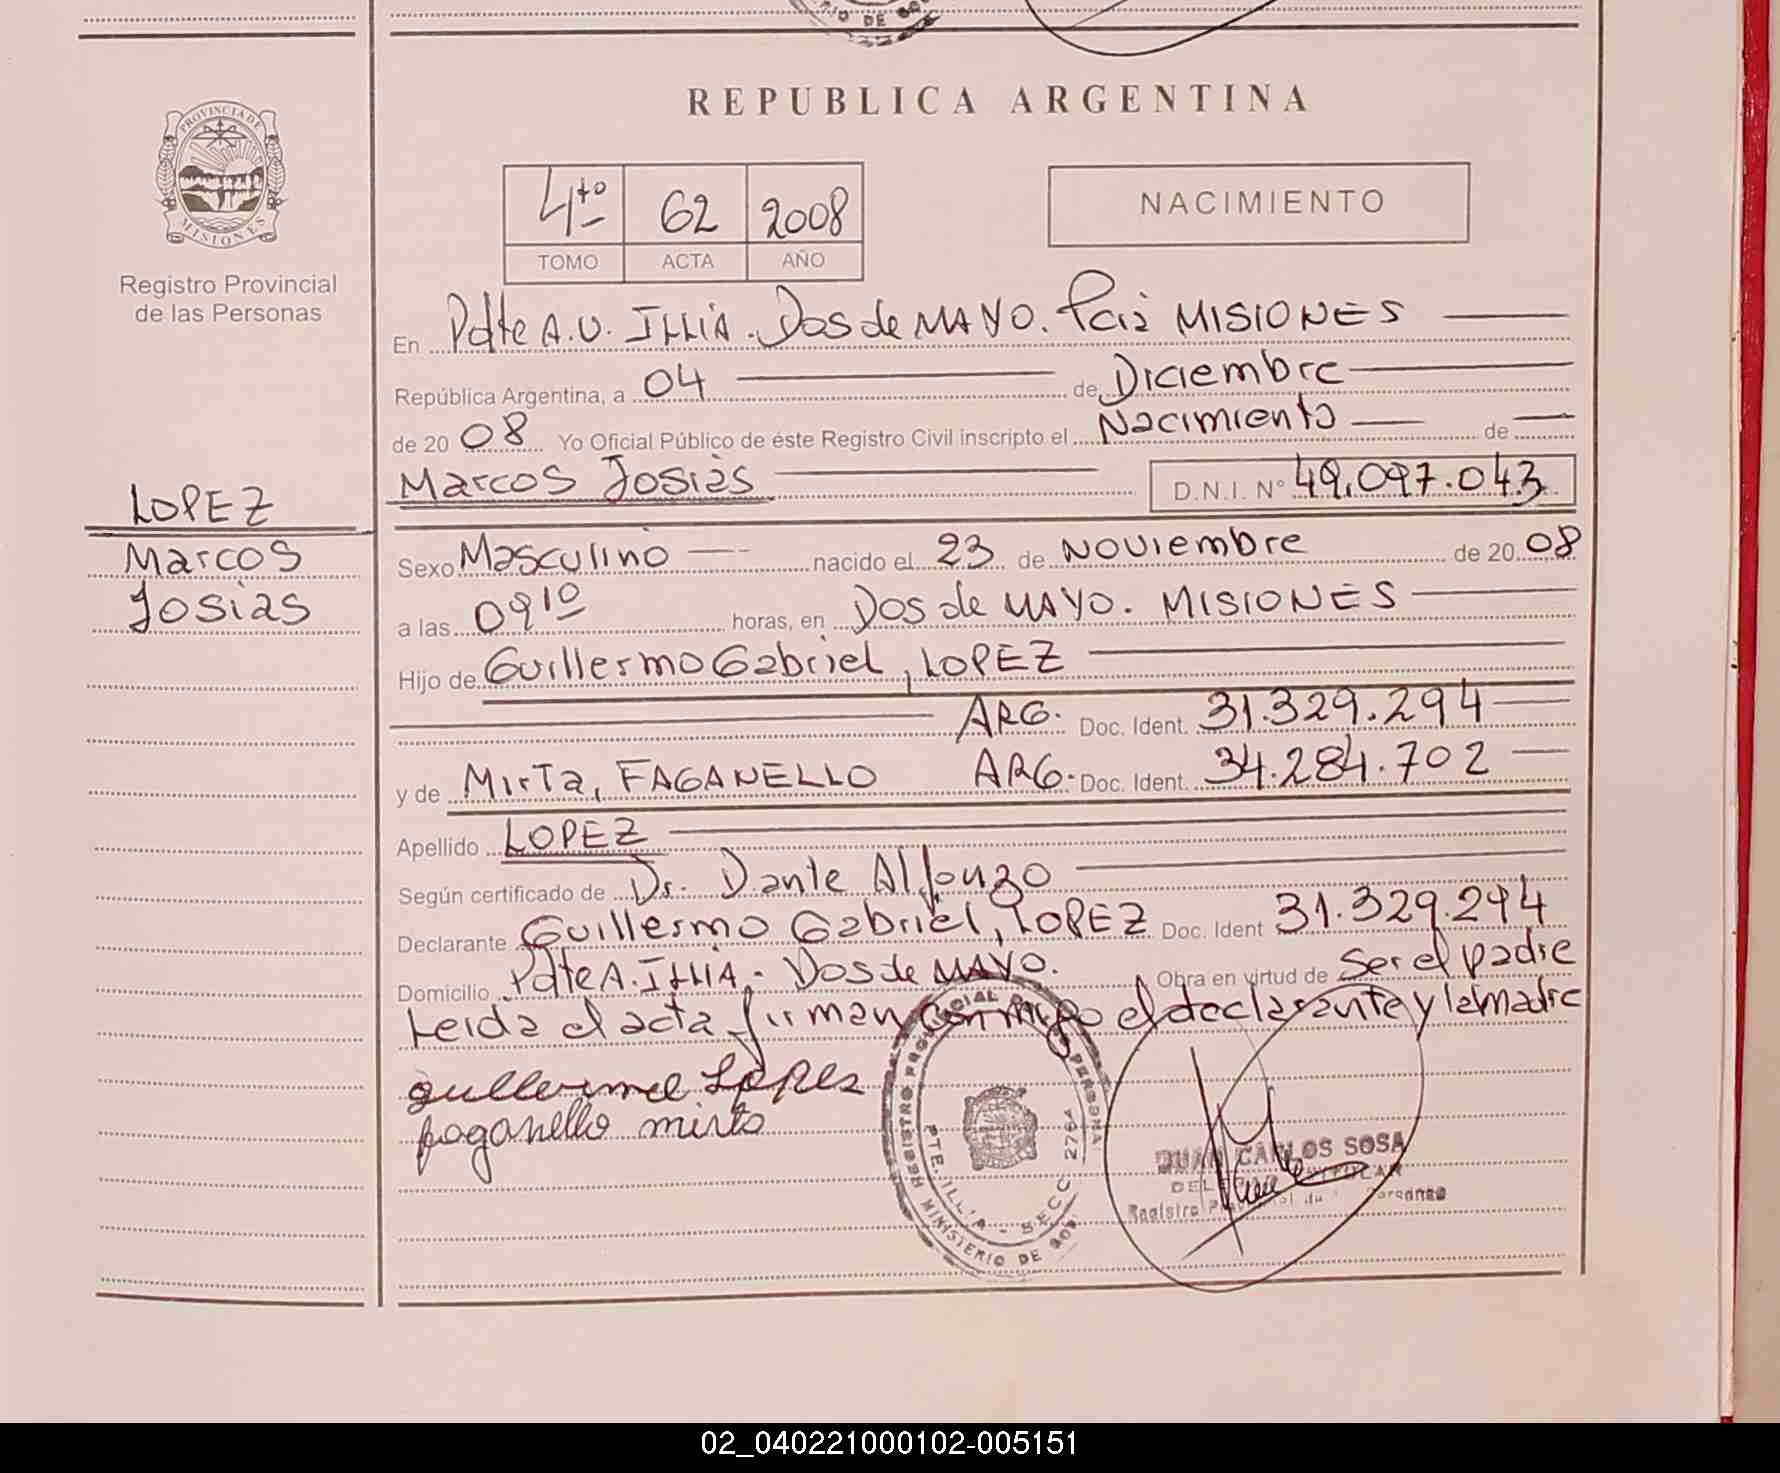 REPUBLICA ARGENTINA
PROVINCIA DE
MISIONES
Registro Provincial
de las Personas
4to 62 2008
TOMO ACTA AÑO
NACIMIENTO
En Pdte A.U. ILLIA. Dos de MAYO. MISIONES
República Argentina, a 04 de Diciembre
de 20 08 Yo Oficial Público de éste Registro Civil inscripto el Nacimiento de
Marcos Josiàs D.N.I. N° 49.097.043
LOPEZ
Marcos
Josias
Sexo Masculino nacido el 23 de Noviembre de 20 08
a las 09 10 horas, en Dos de MAYO. MISIONES
Hijo de Guillermo Gabriel, LOPEZ
ARG. Doc. Ident. 31.329.294
y de Mirta, FAGANELLO ARG. Doc. Ident. 34.284.702
Apellido LOPEZ
Según certificado de Dr. Dante Alfonzo
Declarante Guillermo Gabriel, LOPEZ Doc. Ident 31.329.294
Domicilio Pdte A. ILLIA. Dos de MAYO. Obra en virtud de Ser el padre
Leida el acta firman conmigo el declarante y la madre
guillerme Lopez
faganello mirta
REGISTRO PROVINCIAL DE PERSONAS
PTE. ILLIA - SECC 2764
MINISTERIO DE GOB
JUAN CARLOS SOSA
Registro
02_040221000102-005151